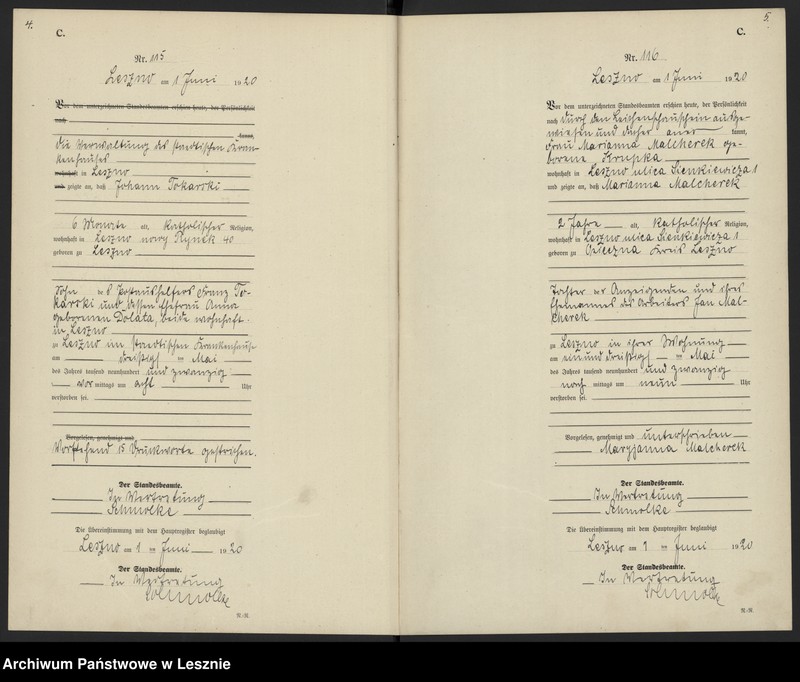 4.
C.
Nr. 115
Leszno am 1 Juni 1920
Vor dem unterzeichneten Standesbeamten erschien heute, der Persönlichkeit
nach
kannt,
die Verwaltung des staedtischen Kran-
kenhauses
wohnhaft in Leszno
und zeigte an, daß Johann Tokarski
6 Monate alt, katholischer Religion,
wohnhaft in Leszno nowy Rynek 40
geboren zu Leszno
Sohn des Postaushelfers Franz To-
karski und dessen Ehefrau Anna
geborenen Dolata, beide wohnhaft
in Leszno
zu Leszno im staedtischen Krankenhause
am dreißigsten Mai
des Jahres tausend neunhundert und zwanzig
vor mittags um acht Uhr
verstorben sei.
Vorgelesen, genehmigt und
Vorstehend 15 Druckworte gestrichen.
Der Standesbeamte.
In Vertretung
Schmolke
Die Übereinstimmung mit dem Hauptregister beglaubigt
Leszno am 1 ten Juni 1920
Der Standesbeamte.
In Vertretung
Schmolke
R.-R.
5.
C.
Nr. 116
Leszno am 1 Juni 1920
Vor dem unterzeichneten Standesbeamten erschien heute, der Persönlichkeit
nach durch den Leichenschauschein ausge-
wiesen und daher aner kannt,
Frau Marianna Malcherek ge-
borene Krupka
wohnhaft in Leszno ulica Sienkiewicza 1
und zeigte an, daß Marianna Malcherek
2 Jahre alt, katholischer Religion,
wohnhaft in Leszno ulica Sienkiewicza 1
geboren zu Kreis Leszno
Tochter der Anzeigenden und ihres
Ehemannes des Arbeiters Jan Mal-
cherek
zu Leszno in ihrer Wohnung
am einunddreißigsten Mai
des Jahres tausend neunhundert und zwanzig
nach mittags um neun Uhr
verstorben sei.
Vorgelesen, genehmigt und unterschrieben
Maryjanna Malcherek
Der Standesbeamte.
In Vertretung
Schmolke
Die Übereinstimmung mit dem Hauptregister beglaubigt
Leszno am 1 ten Juni 1920
Der Standesbeamte.
In Vertretung
Schmolke
R.-R.
Archiwum Państwowe w Lesznie